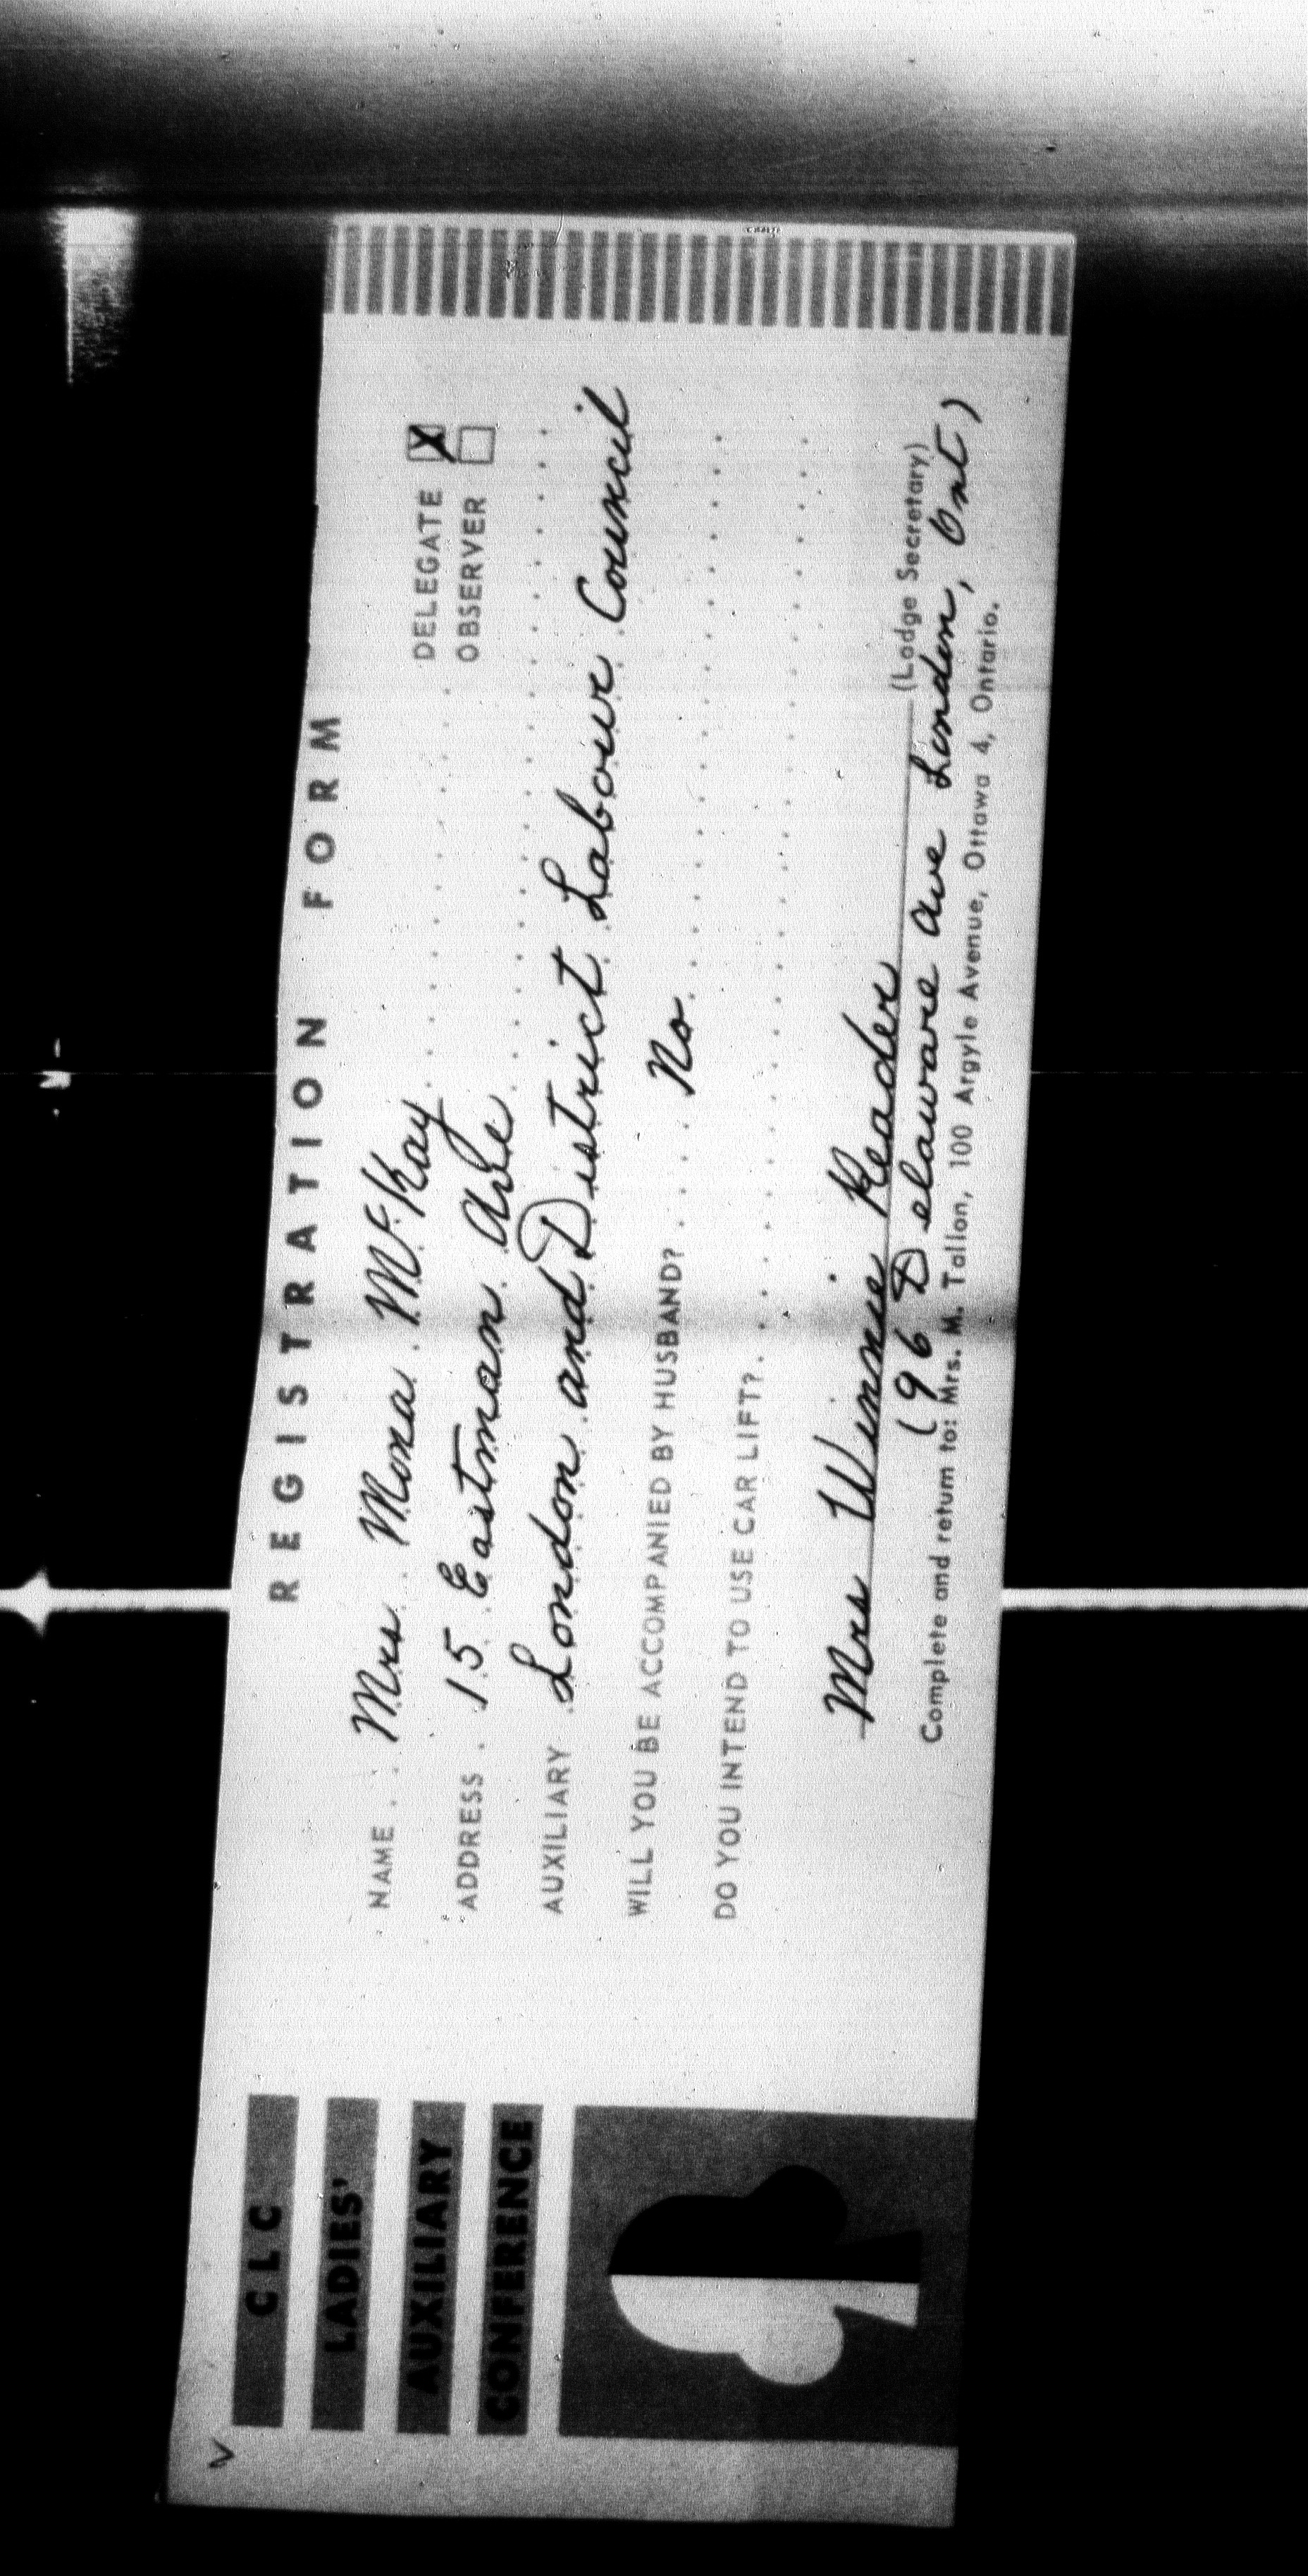 CLC
LADIES'
AUXILIARY
CONFERENCE
REGISTRATION FORM
NAME . . Mrs Mona McKay DELEGATE X
ADDRESS . 15 Eastman Ave OBSERVER
AUXILIARY London and District Labour Council
WILL YOU BE ACCOMPANIED BY HUSBAND? . . . . No
DO YOU INTEND TO USE CAR LIFT? . . . .
Mrs Winnie Reader (Lodge Secretary)
(96 Delaware Ave London, Ont)
Complete and return to: Mrs. M. Tallon, 100 Argyle Avenue, Ottawa 4, Ontario.